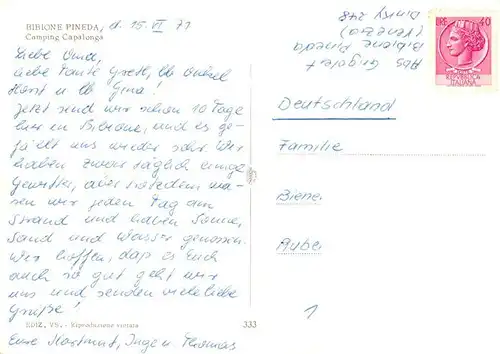 BIBIONE PINEDA, d. 15. VI 71
Camping Capalonga
Liebe Oma,
liebe Tante Gretl, lb Onkel
Horst u lb Gina!
Jetzt sind wir schon 10 Tage
hier in Bibione, und es ge-
fällt uns wieder sehr. Wir
haben zwar täglich einige
Gewitter, aber trotzdem wa-
ren wir jeden Tag am
Strand und haben Sonne,
Sand und Wasser genossen.
Wir hoffen, daß es Euch
auch so gut geht wir
uns und senden viele liebe
Grüße!
EDIZ. V.S. - Riproduzione vietata
333
Eure Hartmut, Inge u Thomas
Abs
Bibione Pineda
(Venezia)
LIRE 40
REPUBBLICA
ITALIANA
Deutschland
Familie
Biene
Aube
1